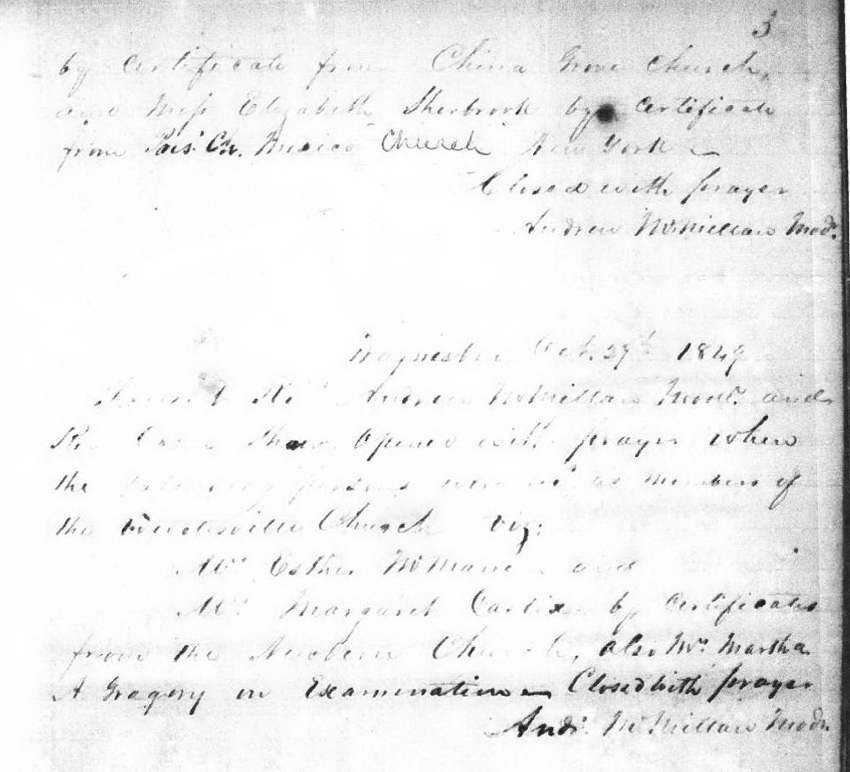 3
by Certificate from China Grove Church,
and Miss Elizabeth Sherbrook by Certificate
from Pres. Ch. Mexico Church New York
Closed with prayer
Andrew McMillan Modr.
Oct. 29th 1849
Present Revd Andrew McMillan Modr. and
Shaw Opened with prayer when
the following persons were as members of
the Church viz:
Mrs Esther and
Mrs Margaret by Certificates
from the Church, also Mrs Martha
A Gregory on Examination Closed with prayer
Andr. McMillan Modr.